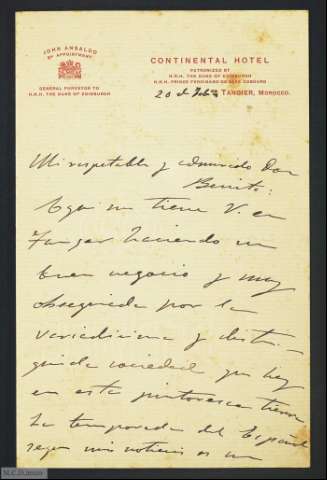 JOHN ANSALDO
BY APPOINTMENT
GENERAL PURVEYOR TO
H.R.H. THE DUKE OF EDINBURGH
CONTINENTAL HOTEL
PATRONIZED BY
H.R.H. THE DUKE OF EDINBURGH
H.R.H. PRINCE FERDINAND OF SAXE COBOURG
20 de TANGIER, MOROCCO.
Mi respetable y admirado Don
Benito:
Aqui me tiene V. en
Tanger haciendo un
buen negocio y muy
obsequiada por la
variadisima y distin-
guida sociedad que hay
en esta pintoresca tierra
La temporada del Español
segun mis noticias es un